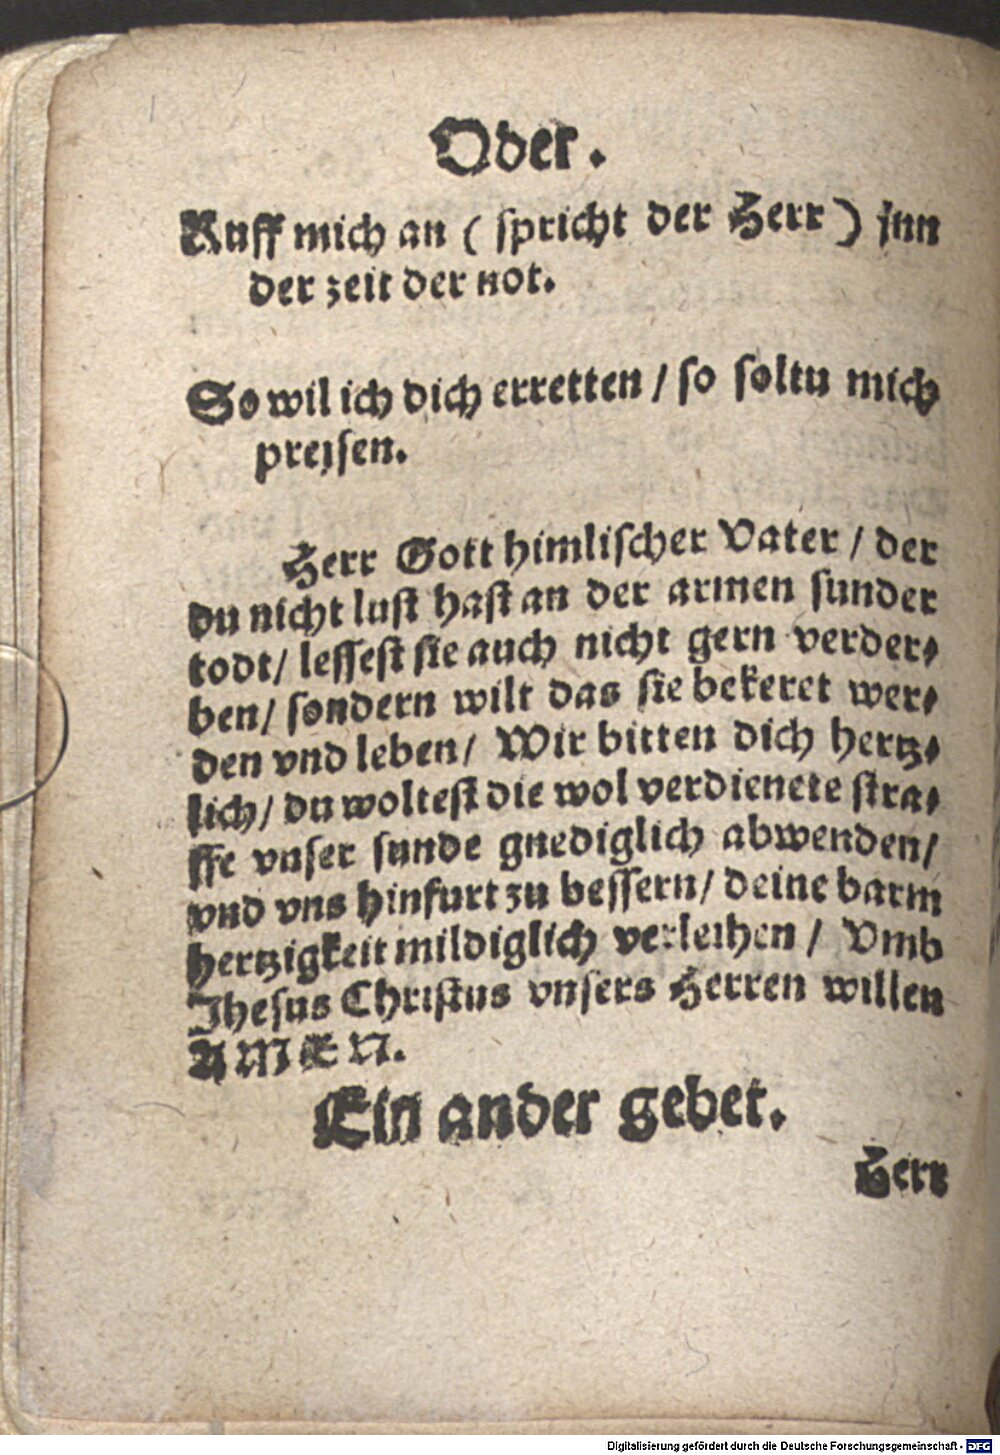 Oder.
Ruff mich an ( spricht der Herr ) jnn
der zeit der not.
So wil ich dich erretten / so soltu mich
preisen.
Herr Gott himlischer Vater / der
du nicht lust hast an der armen sunder
todt / lessest sie auch nicht gern verder⸗
ben / sondern wilt das sie bekeret wer⸗
den vnd leben / Wir bitten dich hertz⸗
lich / du woltest die wol verdienete stra⸗
ffe vnser sunde gnediglich abwenden /
vnd vns hinfurt zu bessern / deine barm
hertzigkeit mildiglich verleihen / Vmb
Jhesus Christus vnsers Herren willen
AMEN.
Ein ander gebet.
Herr
Digitalisierung gefördert durch die Deutsche Forschungsgemeinschaft - DFG